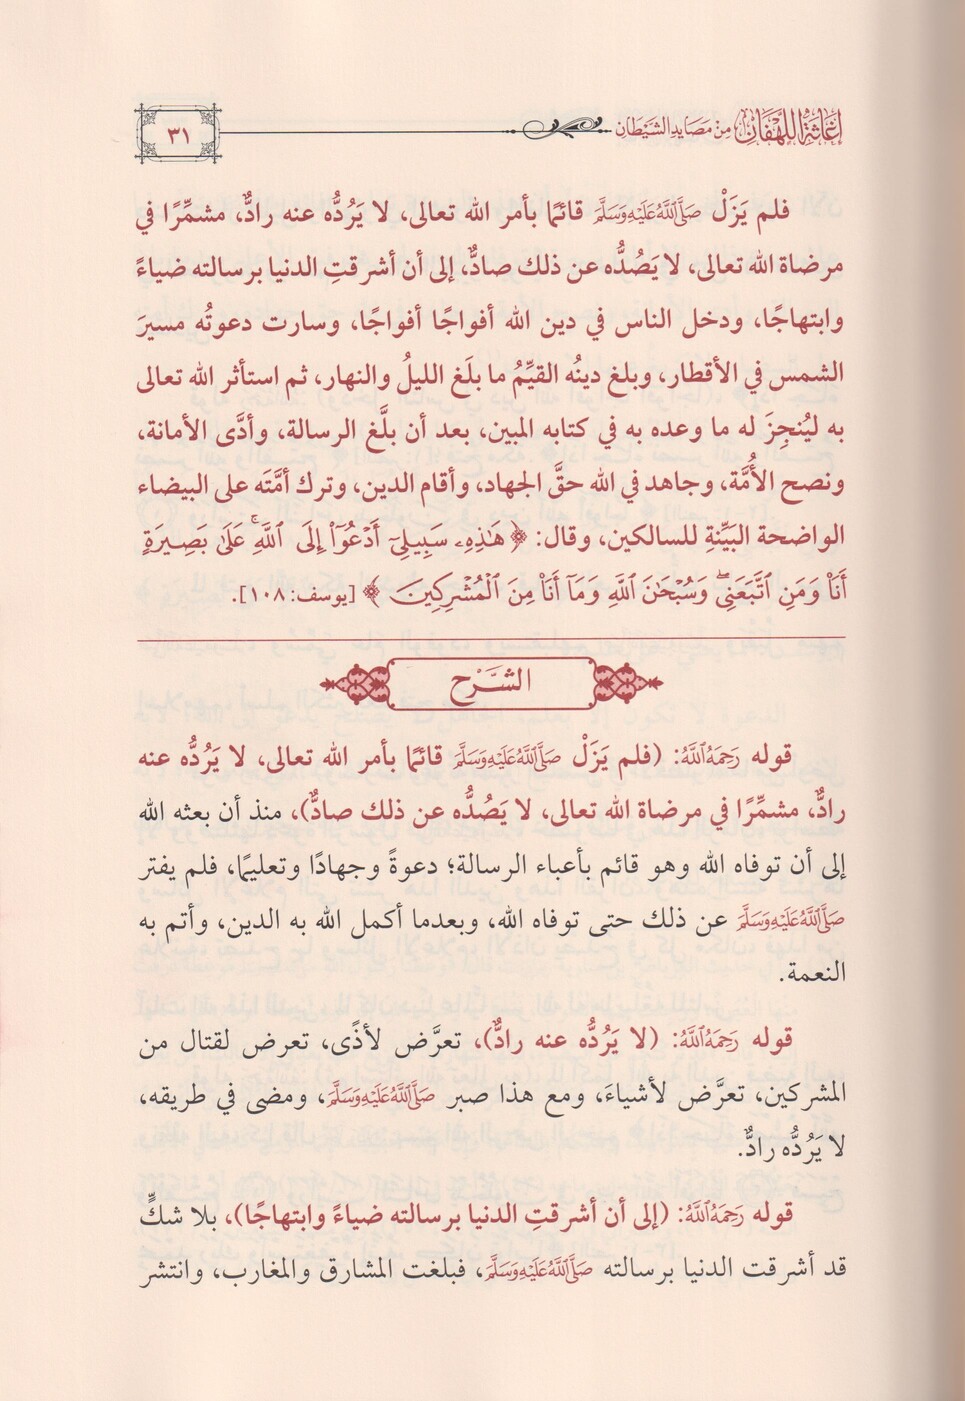 إغاثة اللهفان من مصايد الشيطان
٣١
فلم يَزَلْ صَلَّى اللَّهُ عَلَيْهِ وَسَلَّمَ قائمًا بأمر الله تعالى، لا يَرُدُّه عنه رادٌّ، مشمِّرًا في
مرضاة الله تعالى، لا يَصُدُّه عن ذلك صادٌّ، إلى أن أشرقتِ الدنيا برسالته ضياءً
وابتهاجًا، ودخل الناس في دين الله أفواجًا أفواجًا، وسارت دعوتُه مسيرَ
الشمس في الأقطار، وبلغ دينُه القيِّمُ ما بلَغ الليلُ والنهار، ثم استأثر الله تعالى
به ليُنجِزَ له ما وعده به في كتابه المبين، بعد أن بلَّغ الرسالة، وأدَّى الأمانة،
ونصح الأُمَّة، وجاهد في الله حقَّ الجهاد، وأقام الدين، وترك أمَّتَه على البيضاء
الواضحة البيِّنةِ للسالكين، وقال: ﴿ هَٰذِهِۦ سَبِيلِىٓ أَدْعُوٓا۟ إِلَى ٱللَّهِ ۚ عَلَىٰ بَصِيرَةٍ
أَنَا۠ وَمَنِ ٱتَّبَعَنِى ۖ وَسُبْحَٰنَ ٱللَّهِ وَمَآ أَنَا۠ مِنَ ٱلْمُشْرِكِينَ ﴾ [يوسف: ١٠٨].
الشَّرْح
قوله رَحِمَهُ اللَّهُ: (فلم يَزَلْ صَلَّى اللَّهُ عَلَيْهِ وَسَلَّمَ قائمًا بأمر الله تعالى، لا يَرُدُّه عنه
رادٌّ، مشمِّرًا في مرضاة الله تعالى، لا يَصُدُّه عن ذلك صادٌّ)، منذ أن بعثه الله
إلى أن توفاه الله وهو قائم بأعباء الرسالة؛ دعوةً وجهادًا وتعليمًا، فلم يفتر
صَلَّى اللَّهُ عَلَيْهِ وَسَلَّمَ عن ذلك حتى توفاه الله، وبعدما أكمل الله به الدين، وأتم به
النعمة.
قوله رَحِمَهُ اللَّهُ: (لا يَرُدُّه عنه رادٌّ)، تعرَّض لأذًى، تعرض لقتال من
المشركين، تعرَّض لأشياءَ، ومع هذا صبر صَلَّى اللَّهُ عَلَيْهِ وَسَلَّمَ، ومضى في طريقه،
لا يَرُدُّه رادٌّ.
قوله رَحِمَهُ اللَّهُ: (إلى أن أشرقتِ الدنيا برسالته ضياءً وابتهاجًا)، بلا شكٍّ
قد أشرقت الدنيا برسالته صَلَّى اللَّهُ عَلَيْهِ وَسَلَّمَ، فبلغت المشارق والمغارب، وانتشر